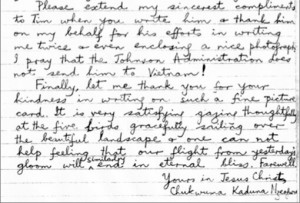 Please extend my sincerest compliments
to Tim when you write him & thank him
on my behalf for his efforts in writing
me twice & even enclosing a nice photograph
I pray that the Johnson Administration does
not send him to Vietnam!
Finally, let me thank you for your
kindness in writing on such a fine picture
card. It is very satisfying gazing thoughtfully
at the five birds gracefully sailing over
the beutiful landscape & one can not
help feeling that our flight from yesterday's
gloom will similarly end in eternal bliss. Farewell.
Yours in Jesus Christ,
Chukwuma Kaduna